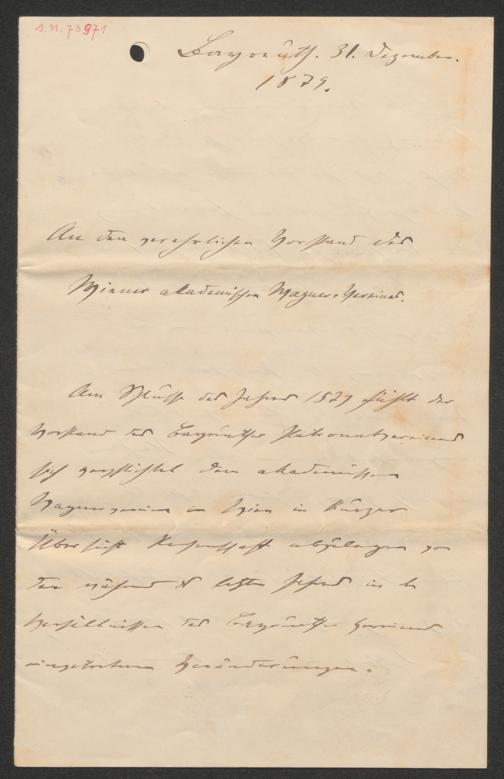 s.n. 73971
Bayreuth. 31. Dezember.
1879.
An den verehrlichen Vorstand des
Wiener akademischen Wagner-Vereines.
Am Schlusse des Jahres 1879 fühlt der
Vorstand des Bayreuther Patronatvereines
sich verpflichtet dem akademischen
Wagnerverein in Wien in kurzer
Übersicht Rechenschaft abzulegen von
den während des letzten Jahres in den
Verhältnissen des Bayreuther Vereines
eingetretenen Veränderungen.